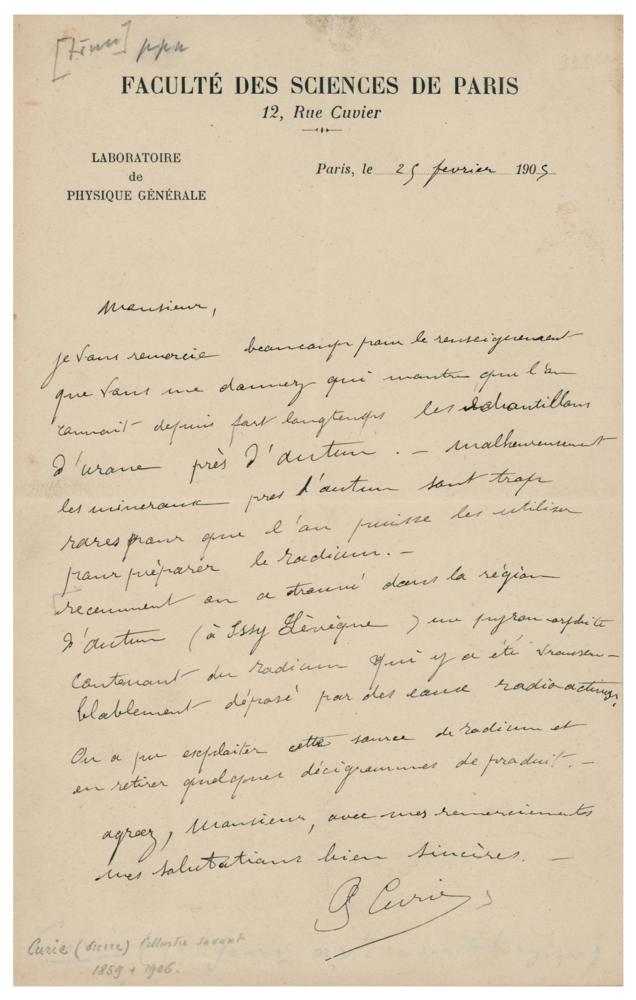 FACULTÉ DES SCIENCES DE PARIS
12, Rue Cuvier
LABORATOIRE
de
PHYSIQUE GÉNÉRALE
Paris, le 25 fevrier 1905
Monsieur,
je vous remercie beaucoup pour le renseignement
que vous me donnez qui montre que l'on
connait depuis fort longtemps les echantillons
d'urane près d'autun. — malheureusement
les mineraux pres d'autun sont trop
rares pour que l'on puisse les utiliser
pour préparer le radium. —
recemment on a trouvé dans la région
d'autun (à Issy Lévèque) un pyromorphite
contenant du radium qui y a été vraisem-
blablement déposé par des eaux radioactives,
On a pu exploiter cette source de radium et
en retirer quelques décigrammes de produit. —
agreez, Monsieur, avec mes remerciements
mes salutations bien sincères. —
P Curie
Curie (Pierre) l'illustre savant
1859 + 1906.